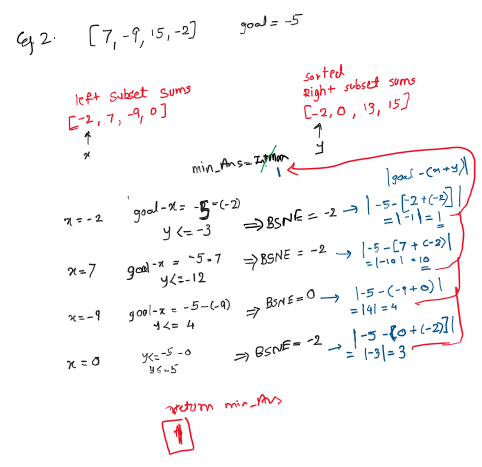 Eg 2. [7, -9, 15, -2] goal = -5
left subset sums
[-2, 7, -9, 0]
↑
x
sorted
right subset sums
[-2, 0, 13, 15]
↑
y
min_Ans = IntMax
1
|goal - (x+y)|
x = -2 goal - x = -5 - (-2)
y <= -3 ⇒ BSNE = -2 → |-5 - [-2 + (-2)]|
= |-1| = 1
x = 7 goal - x = -5 - 7
y <= -12 ⇒ BSNE = -2 → |-5 - [7 + (-2)]|
= |-10| = 10
x = -9 goal - x = -5 - (-9)
y <= 4 ⇒ BSNE = 0 → |-5 - (-9 + 0)|
= |4| = 4
x = 0 y <= -5 - 0
y <= -5 ⇒ BSNE = -2 → |-5 - [0 + (-2)]|
= |-3| = 3
return min_Ans
1